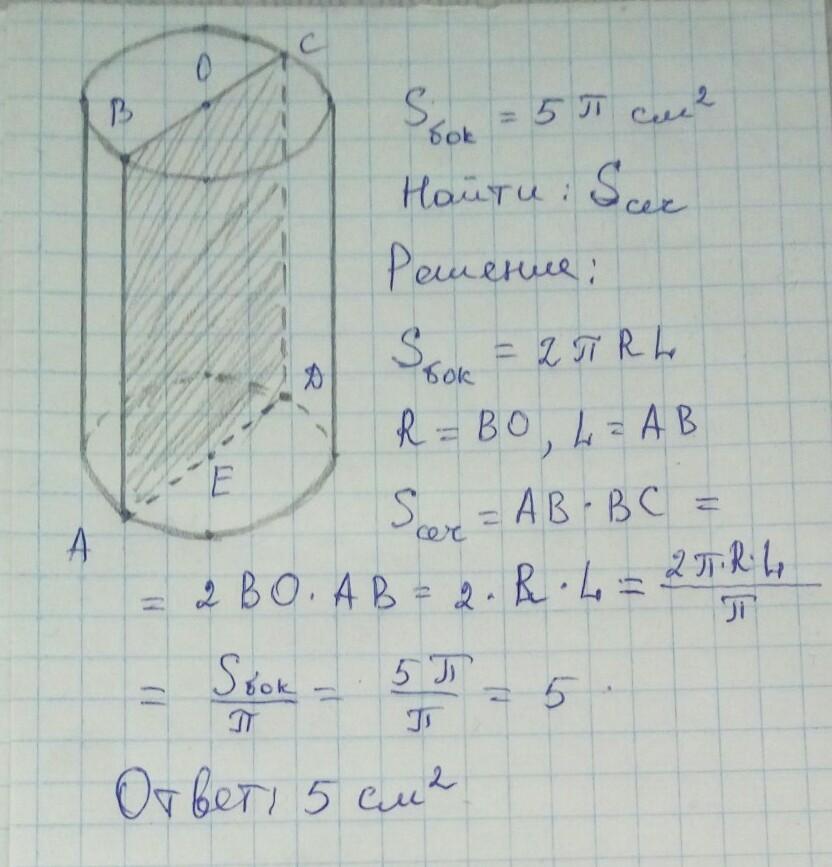 C
O
B
S бок = 5 π см²
Найти : S сеч
Решение:
S бок = 2 π R L
D
R = BO, L = AB
E
S сеч = AB · BC =
A
= 2 BO · AB = 2 · R · L = 2 π · R · L / π
= S бок / π = 5 π / π = 5
Ответ: 5 см²